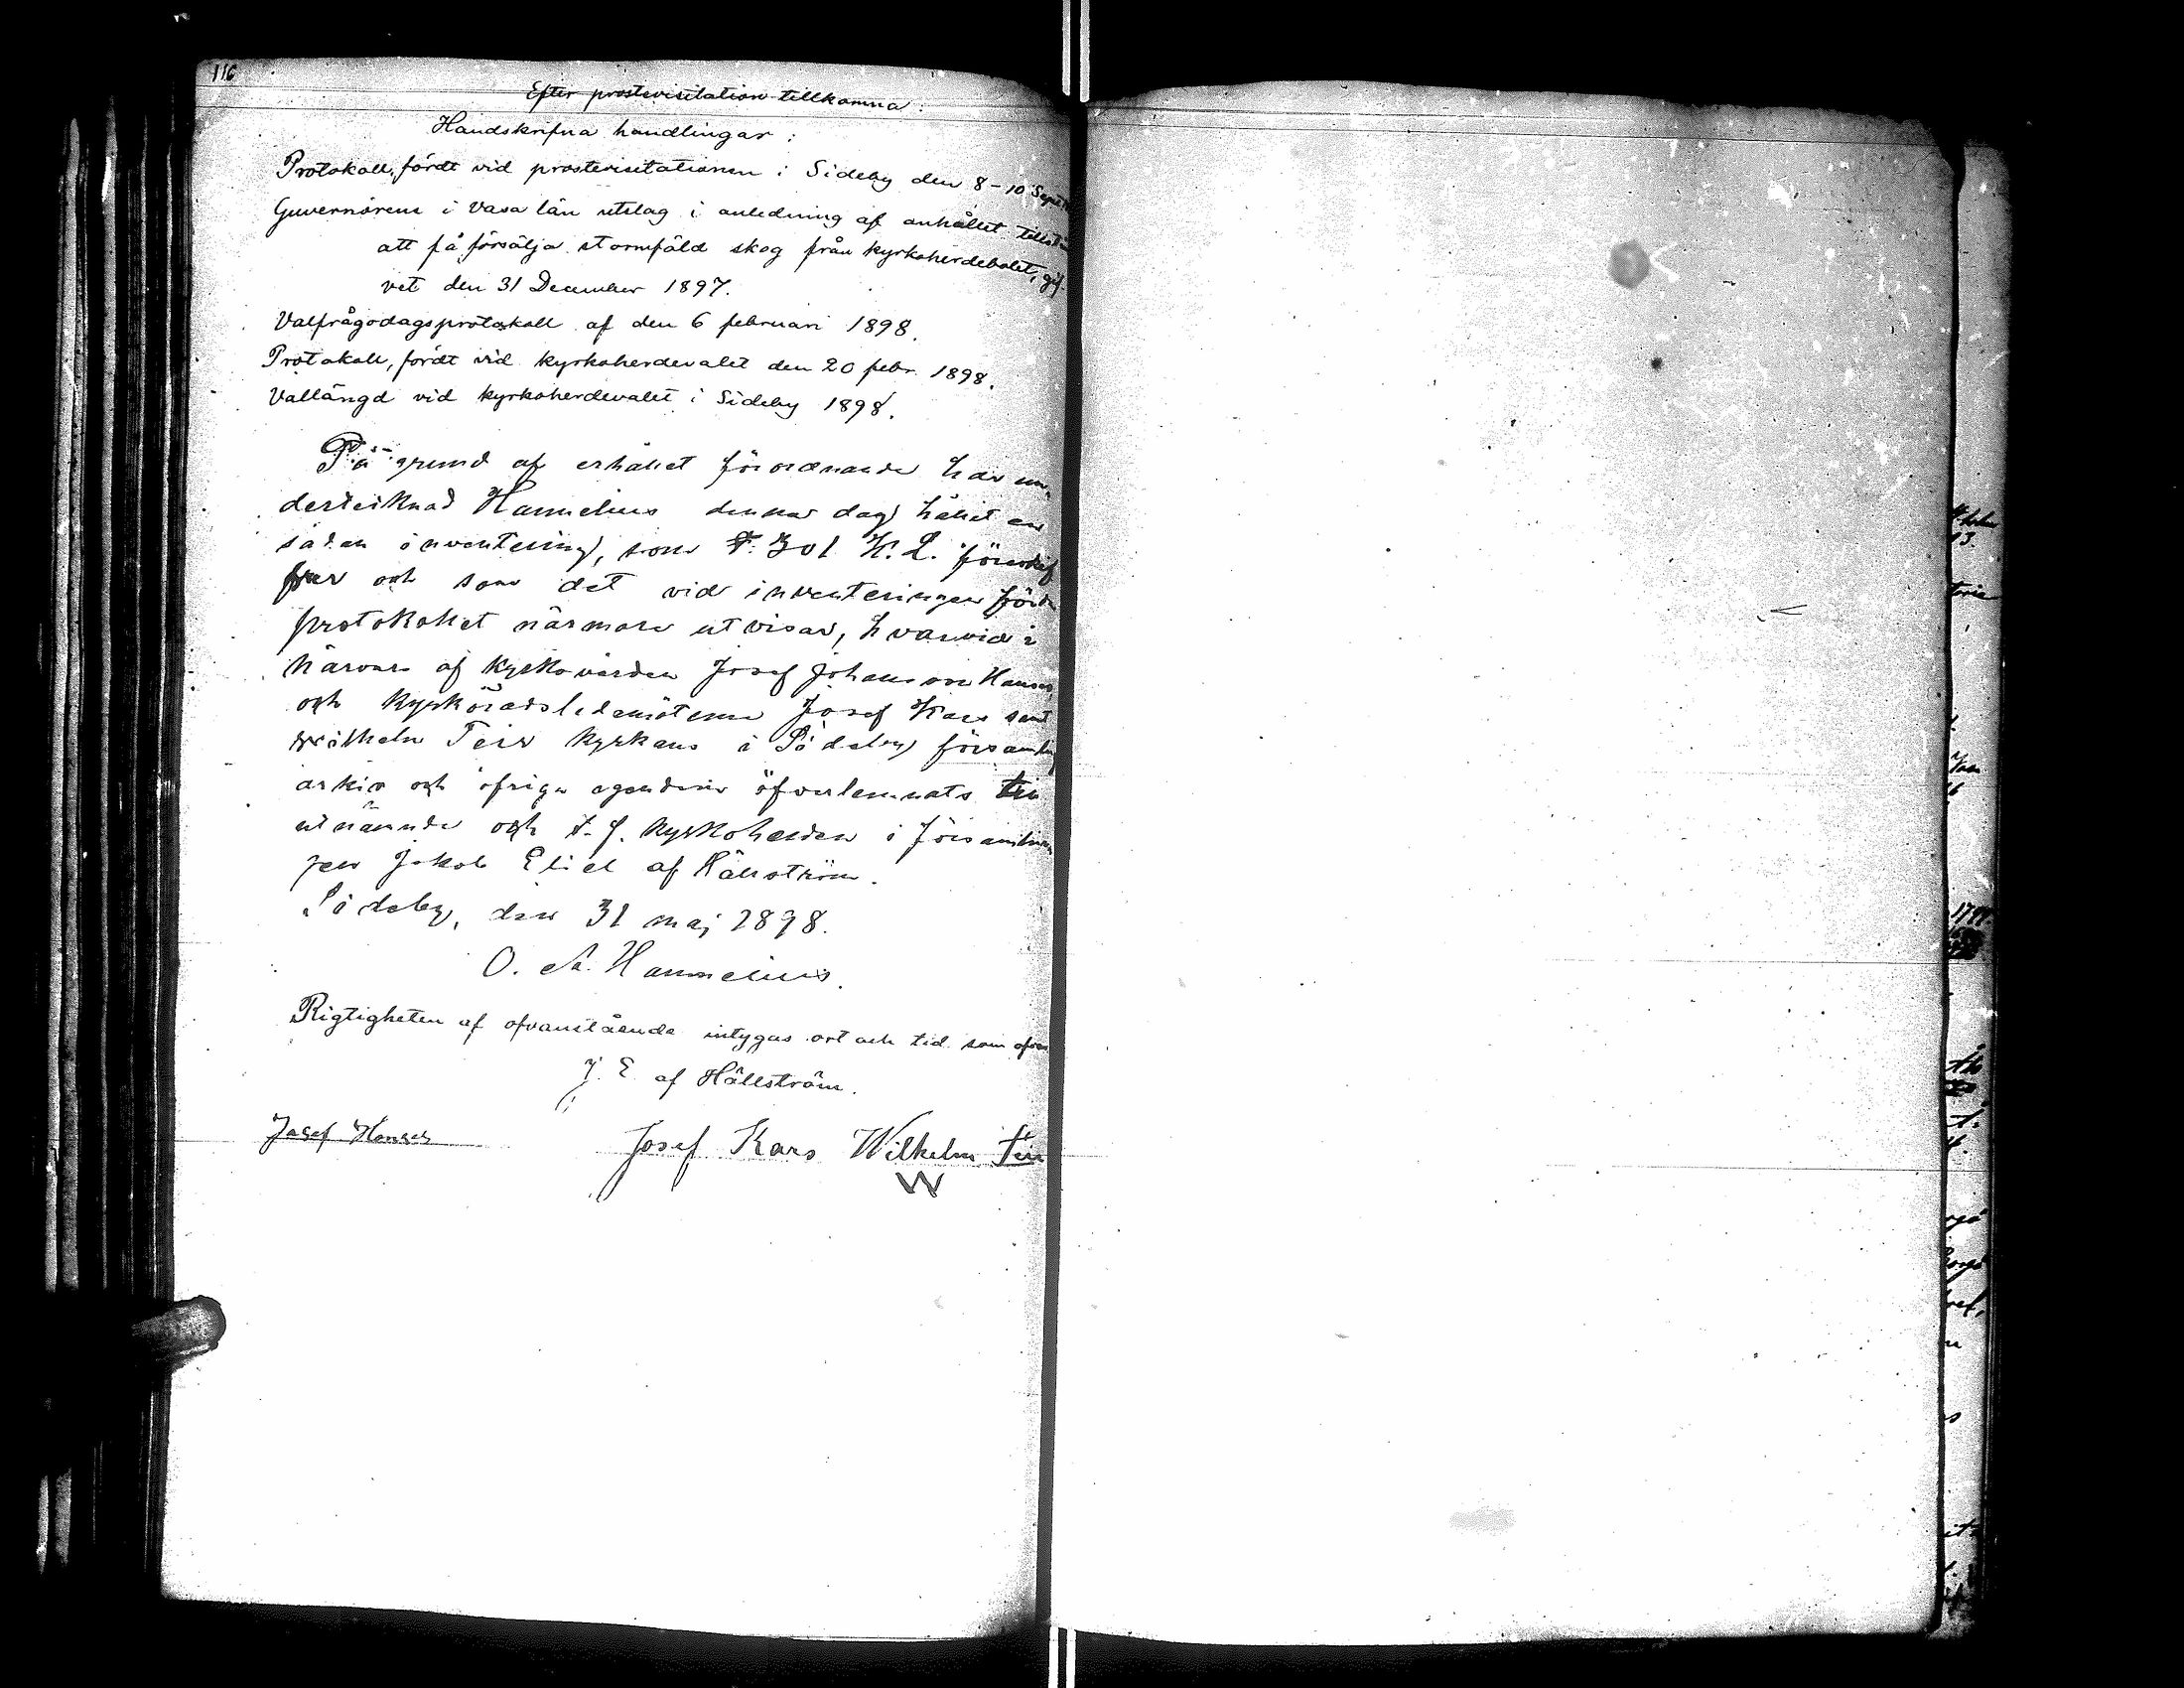 116
Efter prostevisitation tillkomna:
Handskrifna handlingar:
Protokoll, fördt vid prostevisitationen i Sideby den 8-10 Sept
Guvernörens i Vasa län utslag i anledning af anhållet tillstån
att få försälja stormfäld skog från kyrkoherdebolet, gif-
vet den 31 December 1897.
Valfrågodagsprotokoll af den 6 februari 1898.
Protokoll, fördt vid kyrkoherdevalet den 20 febr. 1898.
Vallängd vid kyrkoherdevalet i Sideby 1898.
På grund af erhållet förordnande har un-
dertecknad Hannelius denna dag hållit en
sådan inventering, som § 301 K. L. föreskrif
ver och som det vid inventeringen förda
protokollet närmare utvisar, hvarvid i
närvaro af kyrkovärden Josef Johansson Hanses
och kyrkorådsledamöterna Josef Kars samt
Wilhelm Teir kyrkans i Sideby församling
arkiv och öfriga egendom öfverlemnats till
utnämnde och t. f. kyrkoherden i församlin
gen Jakob Eliel af Hällström.
Sideby, den 31 maj 1898.
O. A. Hannelius.
Rigtigheten af ofvanstående intygas ort och tid som ofvan
J. E. af Hällström.
Josef Hanses
Josef Kars Wilhelm Teir
W